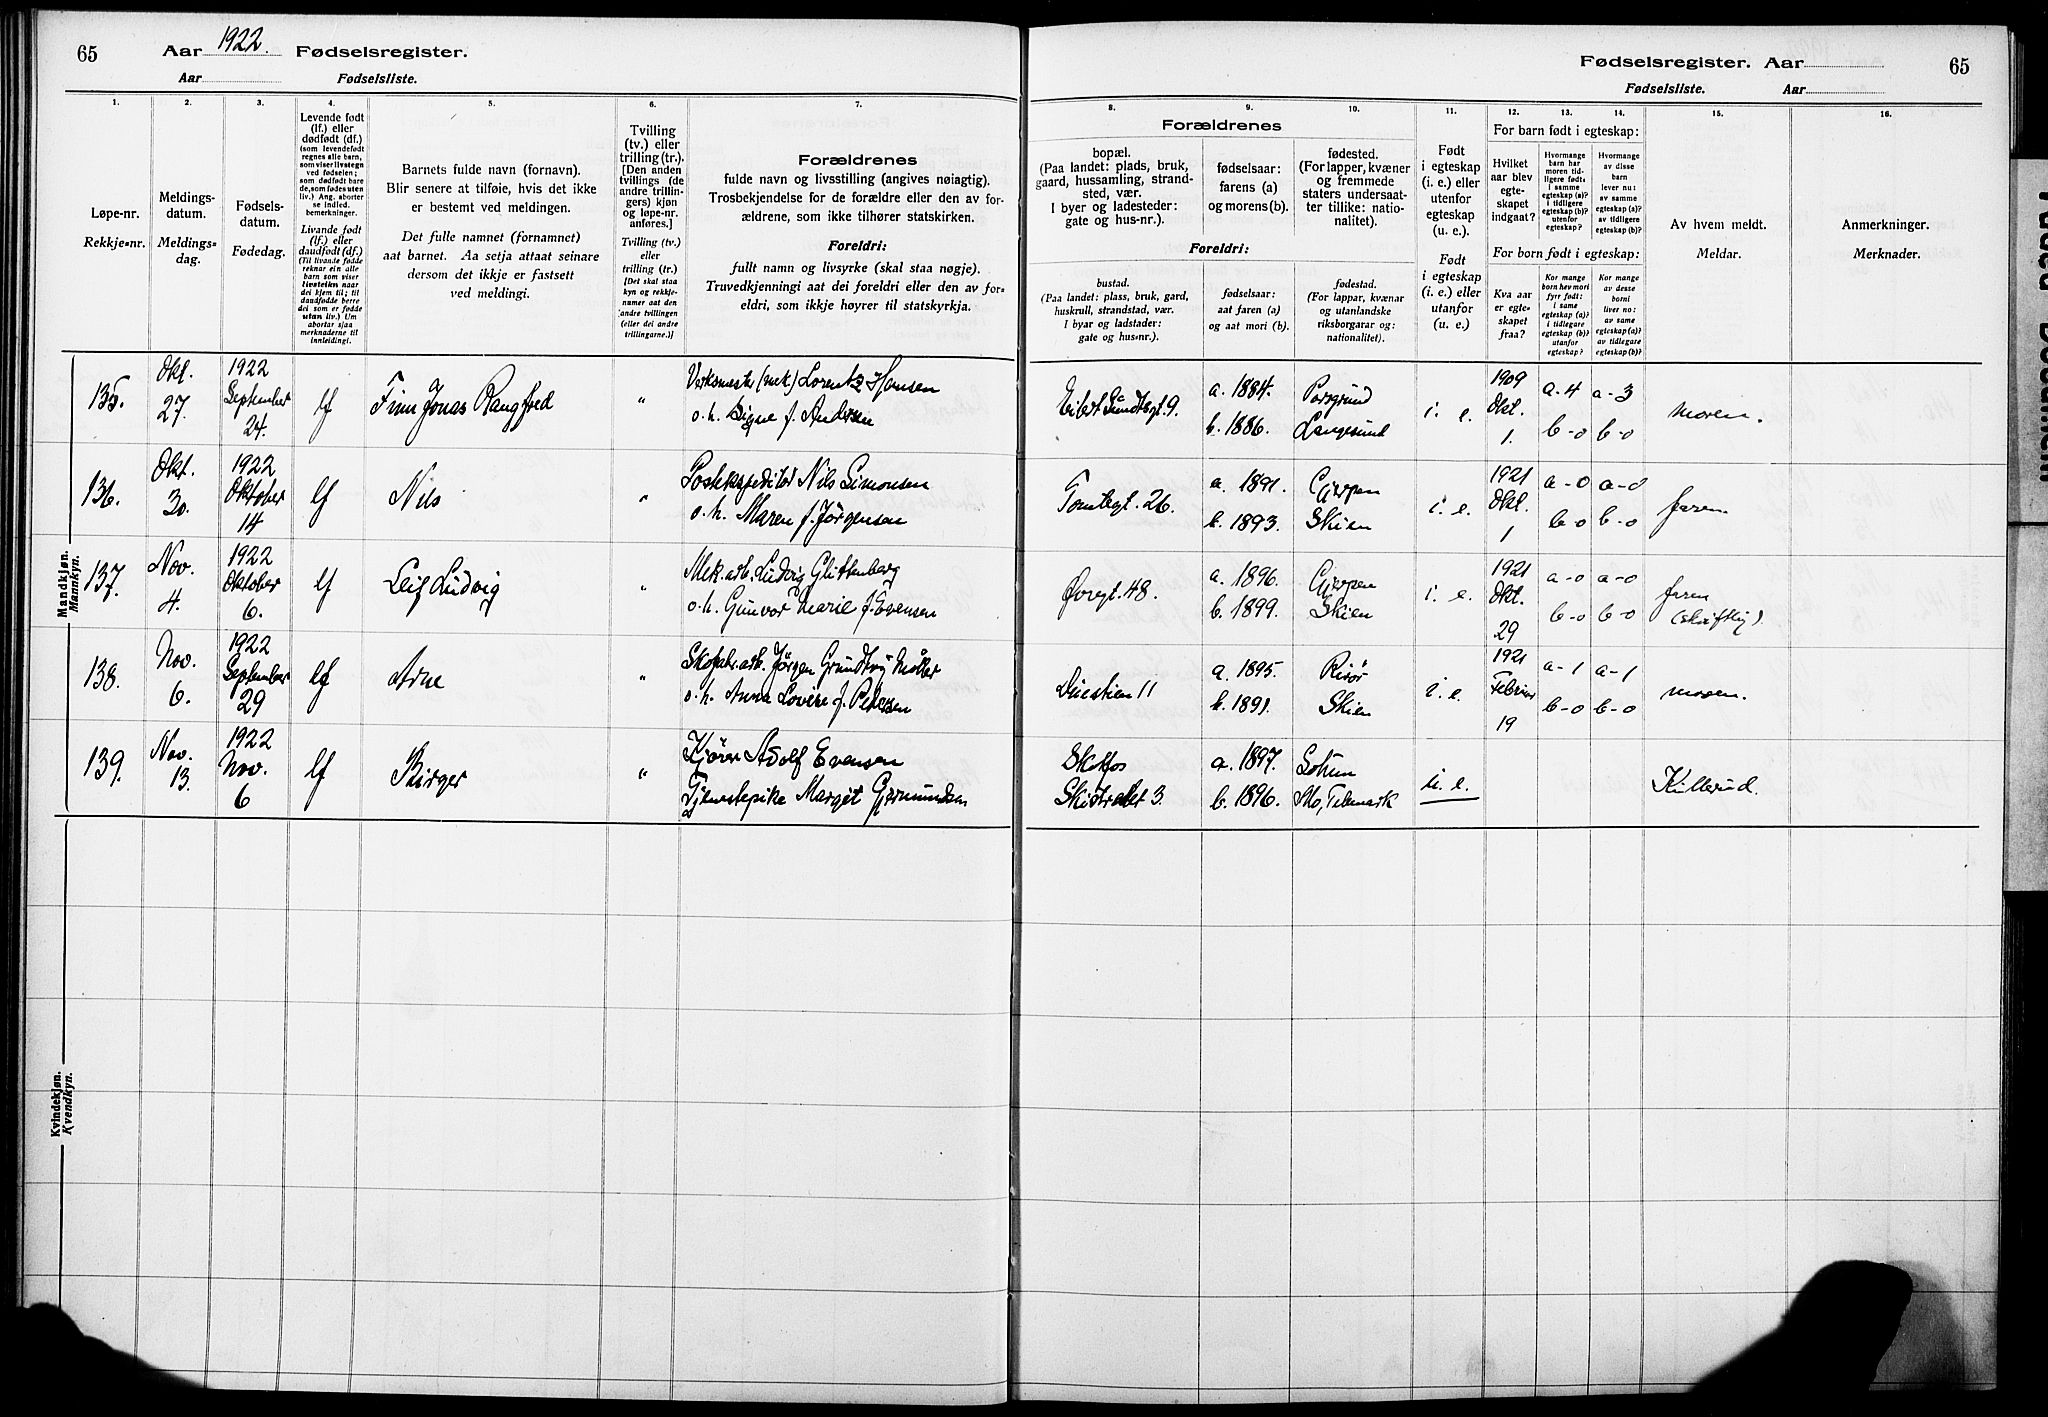 65 Aar 1922. Fødselsregister.
Aar Fødselsliste.
Fødselsregister. Aar 65
Fødselsliste. Aar
1. 2. 3. 4. 5. 6. 7.
8. 9. 10. 11. 12. 13. 14. 15. 16.
Løpe-nr.
Rekkje=nr.
Meldings-
datum.
Meldings=
dag.
Fødsels-
datum.
Fødedag.
Levende født
(lf.) eller
dødfødt (df.)
(som levendefødt
regnes alle barn,
som viser livstegn
ved fødselen;
som dødfødt bare
de, som fødes uten
liv.) Ang. aborter
se indled.
bemerkninger.
Livande født
(lf.) eller
daudfødt (df.)
(Til livande fødde
reknar ein alle
barn som viser
livsteikn naar
dei kjem til; til
daudfødde berre
dei som er fødde
utan liv.) Um
abortar sjaa
merknaderne til
innleidingi.
Barnets fulde navn (fornavn).
Blir senere at tilføie, hvis det ikke
er bestemt ved meldingen.
Det fulle namnet (fornamnet)
aat barnet. Aa setja attaat seinare
dersom det ikkje er fastsett
ved meldingi.
Tvilling
(tv.) eller
trilling (tr.)
[Den anden
tvillings (de
andre trillin-
gers) kjøn
og løpe-nr.
anføres.]
Tvilling (tv.)
eller
trilling (tr.)
[Det skal staa
kyn og rekkje-
numer aat den
andre tvillingen
(eller dei andre
trillingarne.)]
Forældrenes
fulde navn og livsstilling (angives nøiagtig).
Trosbekjendelse for de forældre eller den av for-
ældrene, som ikke tilhører statskirken.
Foreldri:
fullt namn og livsyrke (skal staa nøgje).
Truvedkjenningi aat dei foreldri eller den av for=
eldri, som ikkje høyrer til statskyrkja.
Forældrenes
bopæl.
(Paa landet: plads, bruk,
gaard, hussamling, strand-
sted, vær.
I byer og ladesteder:
gate og hus-nr.).
fødselsaar:
farens (a)
og morens (b).
fødested.
(For lapper, kvæner
og fremmede
staters undersaat-
ter tillike: natio-
nalitet).
Foreldri:
bustad.
(Paa landet: plass, bruk, gard,
huskrull, strandstad, vær.
I byar og ladstader:
gate og hus=nr.).
fødselsaar:
aat faren (a)
og aat mori (b).
fødestad.
(For lappar, kvænar
og utanlandske
riksborgarar og:
nationalitet).
Født
i egteskap
(i. e.) eller
utenfor
egteskap
(u. e.).
Født
i egteskap
(i. e.) eller
utanfor
(u. e.).
For barn født i egteskap:
Hvilket
aar blev
egte-
skapet
indgaat?
Hvormange
barn har
moren tid-
ligere født:
i samme
egteskap (a)?
i tidligere
egteskap (b)?
utenfor
egteskap?
Hvormange
av disse
barn
lever nu:
av samme
egteskap (a)?
av tidligere
egteskap (b)?
For born født i egteskap:
Kva aar
er egte-
skapet
fraa?
Kor mange
born hev mori
fyrr født:
i same
egteskap (a)?
i tidlegare
egteskap (b)?
utanfor
egteskap?
Kor mange
av desse
borni
liver no:
av same
egteskap (a)?
av tidlegare
egteskap (b)?
Av hvem meldt.
Meldar.
Anmerkninger.
Merknader.
Mandkjøn.
Mannkyn.
135. Okt. 27. 1922 September 24. lf Finn Jonas Rangfred "
Verksmester (mek) Lorentz Hansen
o. h. Signe f. Andersen
Eilert Sundtsgt. 9. a. 1884. Porsgrund i. e. 1909 Okt. 1. a-4 a-3 moren.
b. 1886. Langesund b-0 b-0
136. Okt. 30. 1922 Oktober 14 lf Nils "
Postekspeditør Nils Simonsen
o. h. Maren f. Jørgensen
Tomtegt. 26. a. 1891. Gjerpen i. e. 1921 Okt. 1 a-0 a-0 faren.
b. 1893. Skien b-0 b-0
137. Nov. 4. 1922 Oktober 6. lf Leif Ludvig "
Mek. arb. Ludvig Glittenberg
o. h. Gunvor Marie f. Evensen
Øvregt. 48. a. 1896. Gjerpen i. e. 1921 Okt. 29 a-0 a-0 faren
b. 1899. Skien b-0 b-0 (skriftlig).
138. Nov. 6. 1922 September 29 lf Arne "
Skofabr. arb. Jørgen Grundtvig Møller
o. h. Anna Lovise f. Petersen
Duestien 11 a. 1895. Risør i. e. 1921 Februar 19 a-1 a-1 moren.
b. 1891. Skien b-0 b-0
139. Nov. 13. 1922 Nov. 6 lf Birger "
Kjører Adolf Evensen
Tjenestepike Margit Gjermundsen
Skotfos a. 1897. Solum u. e. Killerud.
Skistredet 3. b. 1896. Mo, Telemark
Kvindekjøn.
Kvendkyn.